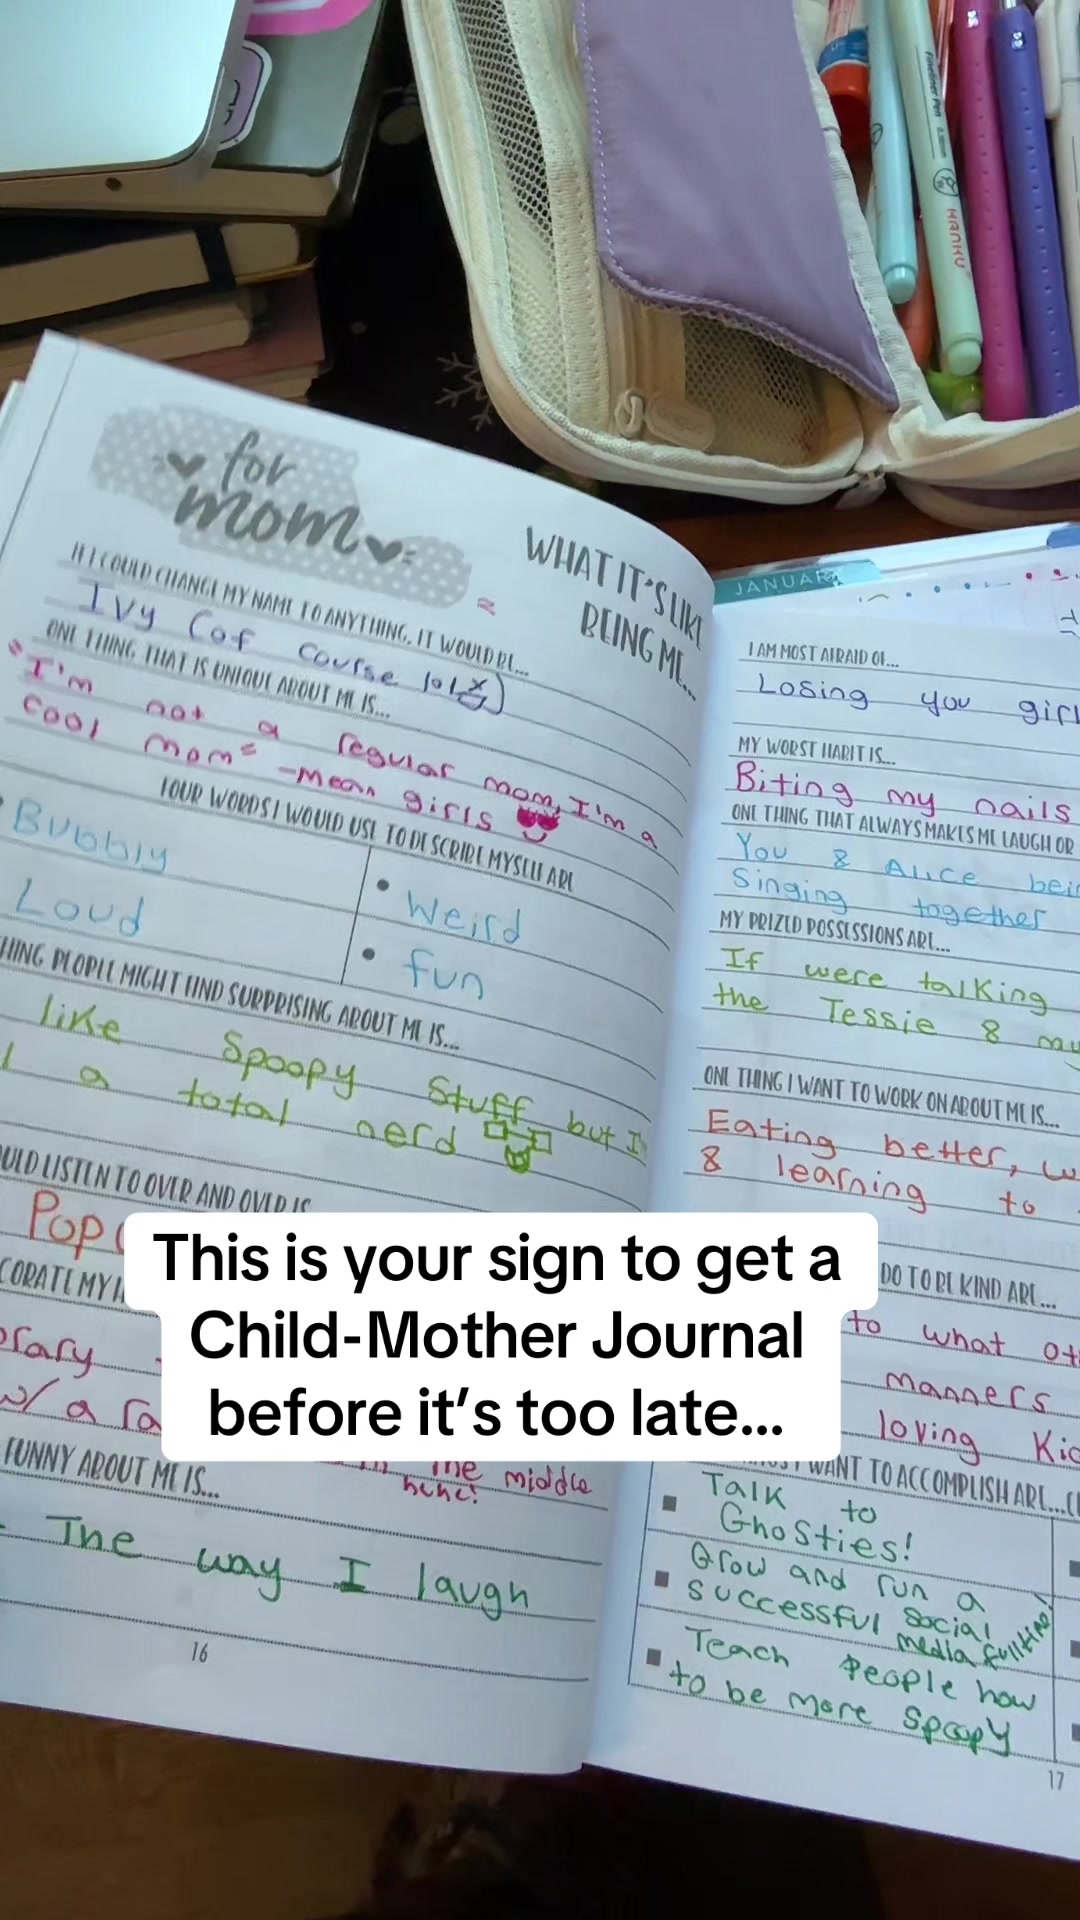 for
mom
WHAT IT'S LIKE
BEING ME...
IF I COULD CHANGE MY NAME TO ANYTHING, IT WOULD BE...
Ivy (of course lol)
ONE THING THAT IS UNIQUE ABOUT ME IS...
"I'm not a regular mom, I'm a
cool mom" -mean girls
FOUR WORDS I WOULD USE TO DESCRIBE MYSELF ARE
Bubbly
Weird
Loud
fun
THING PEOPLE MIGHT FIND SURPRISING ABOUT ME IS...
like Spoopy Stuff but I'
a total nerd
OULD LISTEN TO OVER AND OVER IS
Pop
CORATE MY
w/ a
the middle
hehe!
FUNNY ABOUT ME IS...
The way I laugh
16
JANUARY
I AM MOST AFRAID OF...
Losing you girl
MY WORST HABIT IS...
Biting my nails
ONE THING THAT ALWAYS MAKES ME LAUGH OR
You & Alice bein
Singing together
MY PRIZED POSSESSIONS ARE...
If were talking
the Tessie & my
ONE THING I WANT TO WORK ON ABOUT ME IS...
Eating better, w
& learning to
DO TO BE KIND ARE...
to what ot
manners
loving Kid
I WANT TO ACCOMPLISH ARE...
Talk to
Ghosties!
Grow and run a
successful social
media fulltime!
Teach people how
to be more spoopy
17
Fineliner Pen
HANKU
This is your sign to get a
Child-Mother Journal
before it's too late...